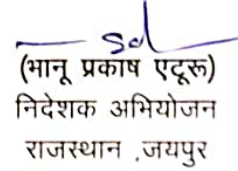 Sd
(भानू प्रकाष एटूरू)
निदेशक अभियोजन
राजस्थान ,जयपुर